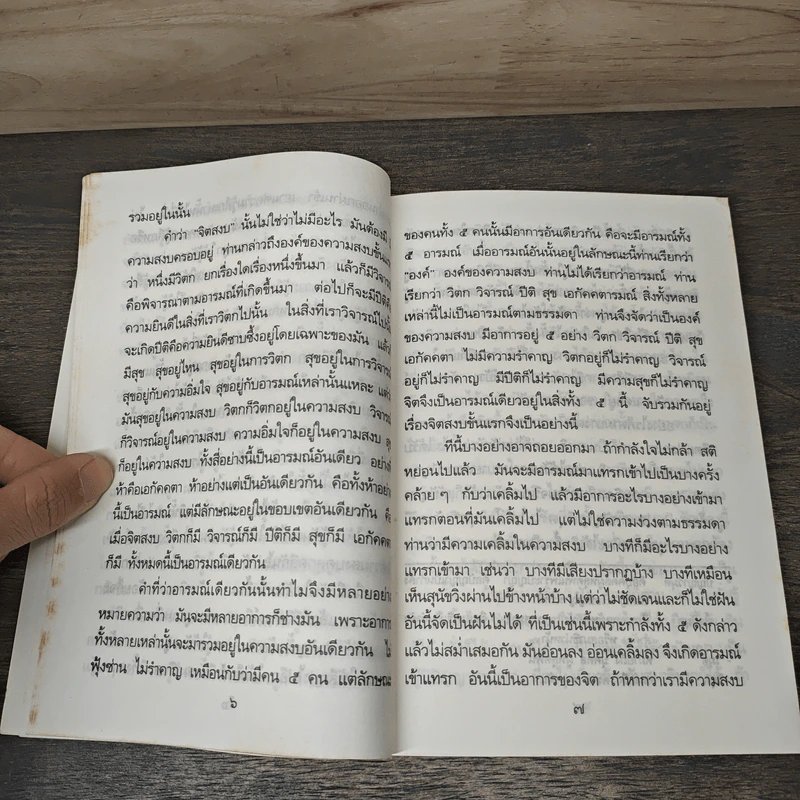 รวมอยู่ในนั้น
คำว่า “จิตสงบ” นั้นไม่ใช่ว่าไม่มีอะไร มันต้องมี
ความสงบครอบอยู่ ท่านกล่าวถึงองค์ของความสงบขั้น
ว่า หนึ่งมีวิตก ยกเรื่องใดเรื่องหนึ่งขึ้นมา แล้วก็มีวิจารณ์
คือพิจารณาตามอารมณ์ที่เกิดขึ้นมา ต่อไปก็จะมีปีติ
ความยินดีในสิ่งที่เราวิตกไปนั้น ในสิ่งที่เราวิจารณ์ไปนั้
จะเกิดปีติคือความยินดีซาบซึ้งอยู่โดยเฉพาะของมัน แล้ว
มีสุข สุขอยู่ไหน สุขอยู่ในการวิตก สุขอยู่ในการวิจารณ
สุขอยู่กับความอิ่มใจ สุขอยู่กับอารมณ์เหล่านั้นแหละ แต่
มันสุขอยู่ในความสงบ วิตกก็วิตกอยู่ในความสงบ วิจารณ
ก็วิจารณ์อยู่ในความสงบ ความอิ่มใจก็อยู่ในความสงบ สุ
ก็อยู่ในความสงบ ทั้งสี่อย่างนี้เป็นอารมณ์อันเดียว อย่างที่
ห้าคือเอกัคคตา ห้าอย่างแต่เป็นอันเดียวกัน คือทั้งห้าอย่าง
นี้เป็นอารมณ์ แต่มีลักษณะอยู่ในขอบเขตอันเดียวกัน คือ
เมื่อจิตสงบ วิตกก็มี วิจารณ์ก็มี ปีติก็มี สุขก็มี เอกัคคตา
ก็มี ทั้งหมดนี้เป็นอารมณ์เดียวกัน
คำที่ว่าอารมณ์เดียวกันนั้นทำไมจึงมีหลายอย่าง
หมายความว่า มันจะมีหลายอาการก็ช่างมัน เพราะอาการ
ทั้งหลายเหล่านั้นจะมารวมอยู่ในความสงบอันเดียวกัน ไม่
ฟุ้งซ่าน ไม่รำคาญ เหมือนกับว่ามีคน ๕ คน แต่ลักษณะ
๖
ของคนทั้ง ๕ คนนั้นมีอาการอันเดียวกัน คือจะมีอารมณ์ทั้ง
๕ อารมณ์ เมื่ออารมณ์อันนั้นอยู่ในลักษณะนี้ท่านเรียกว่า
“องค์” องค์ของความสงบ ท่านไม่ได้เรียกว่าอารมณ์ ท่าน
เรียกว่า วิตก วิจารณ์ ปีติ สุข เอกัคคตารมณ์ สิ่งทั้งหลาย
เหล่านี้ไม่เป็นอารมณ์ตามธรรมดา ท่านจึงจัดว่าเป็นองค์
ของความสงบ มีอาการอยู่ ๕ อย่าง วิตก วิจารณ์ ปีติ สุข
เอกัคคตา ไม่มีความรำคาญ วิตกอยู่ก็ไม่รำคาญ วิจารณ์
อยู่ก็ไม่รำคาญ มีปีติก็ไม่รำคาญ มีความสุขก็ไม่รำคาญ
จิตจึงเป็นอารมณ์เดียวอยู่ในสิ่งทั้ง ๕ นี้ จับรวมกันอยู่
เรื่องจิตสงบชั้นแรกจึงเป็นอย่างนี้
ทีนี้บางอย่างอาจถอยออกมา ถ้ากำลังใจไม่กล้า สติ
หย่อนไปแล้ว มันจะมีอารมณ์มาแทรกเข้าไปเป็นบางครั้ง
คล้าย ๆ กับว่าเคลิ้มไป แล้วมีอาการอะไรบางอย่างเข้ามา
แทรกตอนที่มันเคลิ้มไป แต่ไม่ใช่ความง่วงตามธรรมดา
ท่านว่ามีความเคลิ้มในความสงบ บางทีก็มีอะไรบางอย่าง
แทรกเข้ามา เช่นว่า บางทีมีเสียงปรากฏบ้าง บางทีเหมือน
เห็นสุนัขวิ่งผ่านไปข้างหน้าบ้าง แต่ว่าไม่ชัดเจนและก็ไม่ใช่ฝัน
อันนี้จัดเป็นฝันไม่ได้ ที่เป็นเช่นนี้เพราะกำลังทั้ง ๕ ดังกล่าว
แล้วไม่สม่ำเสมอกัน มันอ่อนลง อ่อนเคลิ้มลง จึงเกิดอารมณ์
เข้าแทรก อันนี้เป็นอาการของจิต ถ้าหากว่าเรามีความสงบ
๗